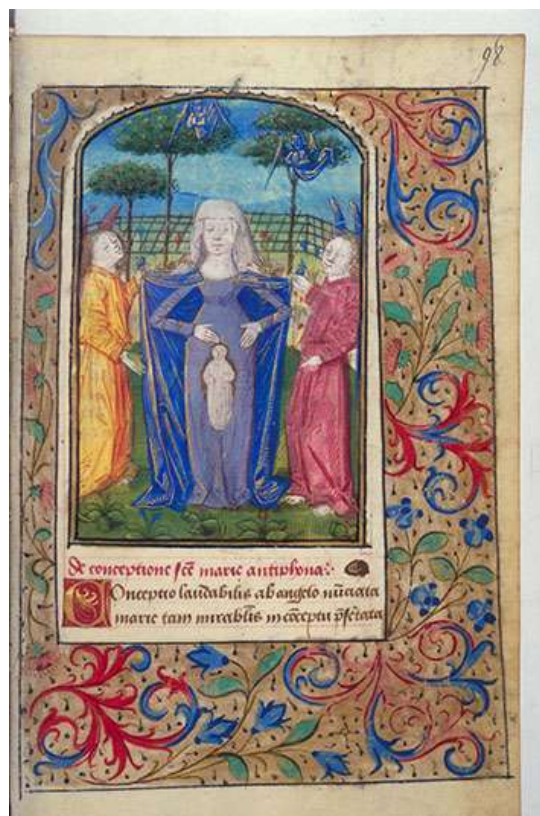 98
De conceptione scē marie antiphona:
Conceptio laudabilis ab angelo nūciata
marie tam mirabīls in cōceptu